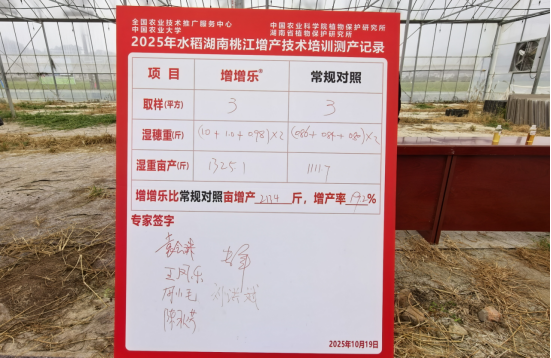 全国农业技术推广服务中心 中国农业科学院植物保护研究所
中国农业大学 湖南省植物保护研究所
2025年水稻湖南桃江增产技术培训测产记录
项目 增增乐® 常规对照
取样(平方) 3 3
湿穗重(斤) (1.0+1.0+0.98)×2 (0.86+0.84+0.80)×2
湿重亩产(斤) 1325.1 1111.7
增增乐比常规对照亩增产 213.4 斤，增产率 19.2 %
专家签字
2025年10月19日